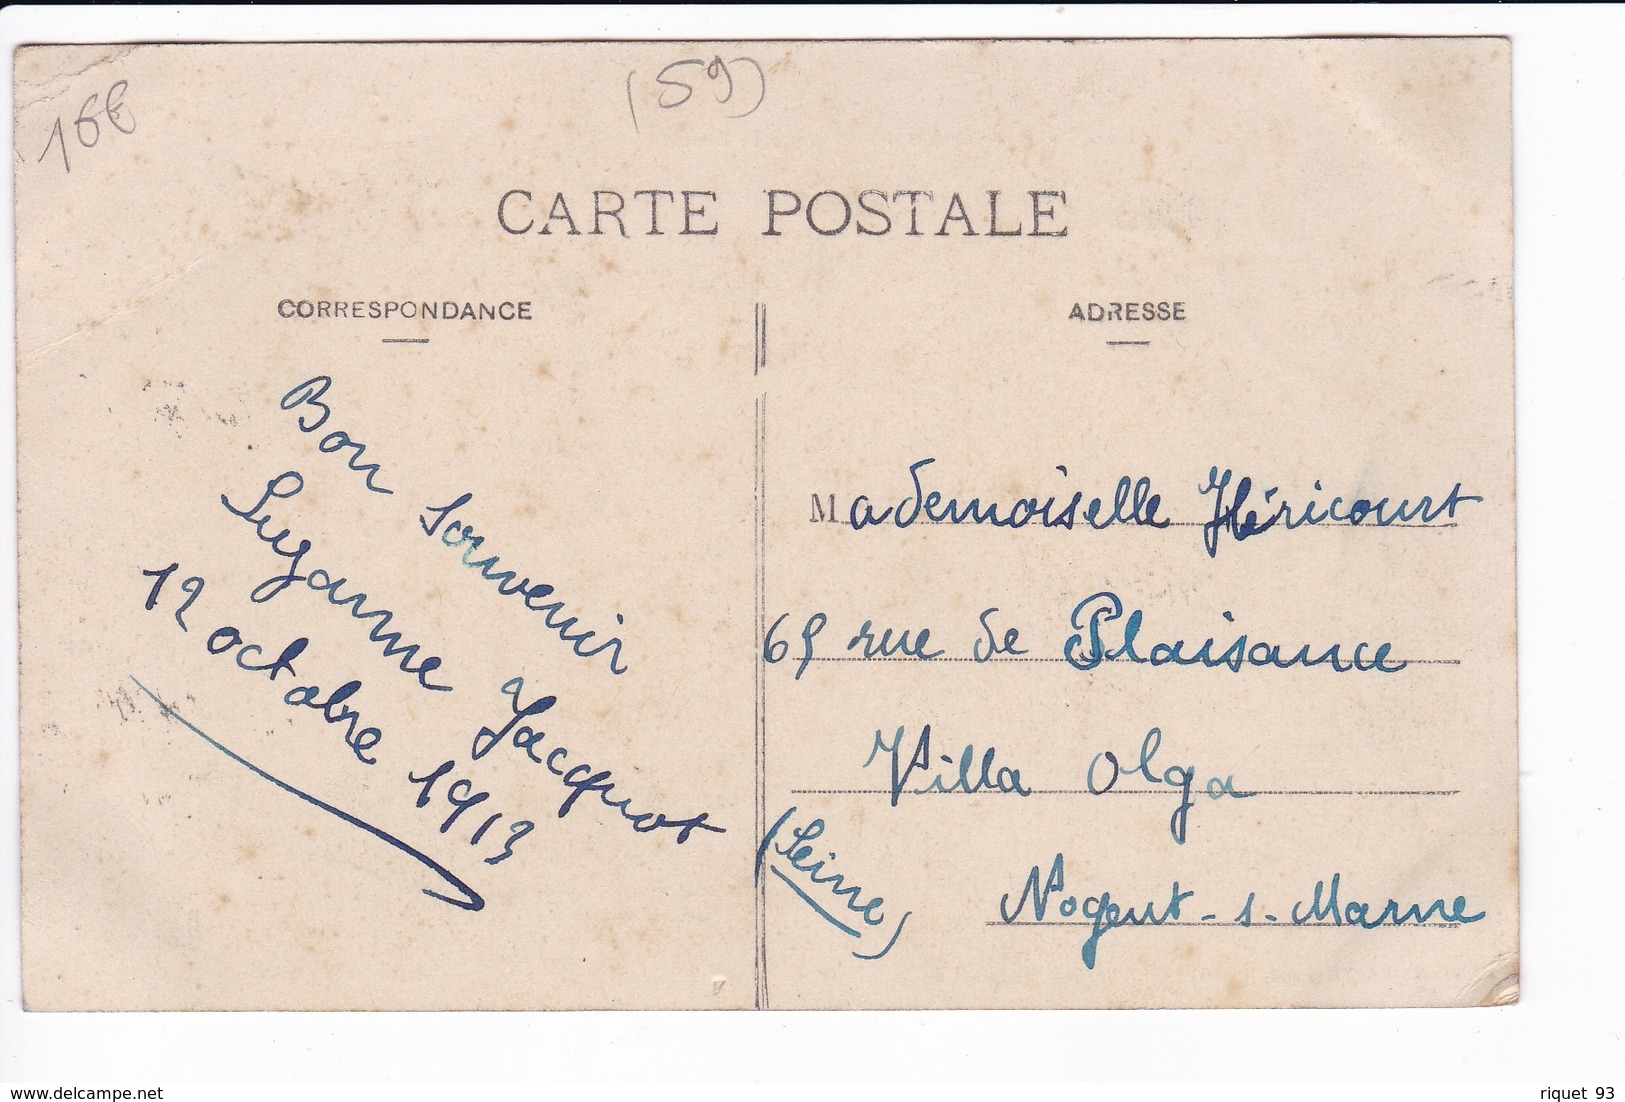 16€
(59)
CARTE POSTALE
CORRESPONDANCE
ADRESSE
Bon Souvenir
Suzanne Jacquot
12 octobre 1913
Mademoiselle Héricourt
69 rue de Plaisance
Villa Olga
(Seine)
Nogent-s-Marne
delcampe.net
riquet 93